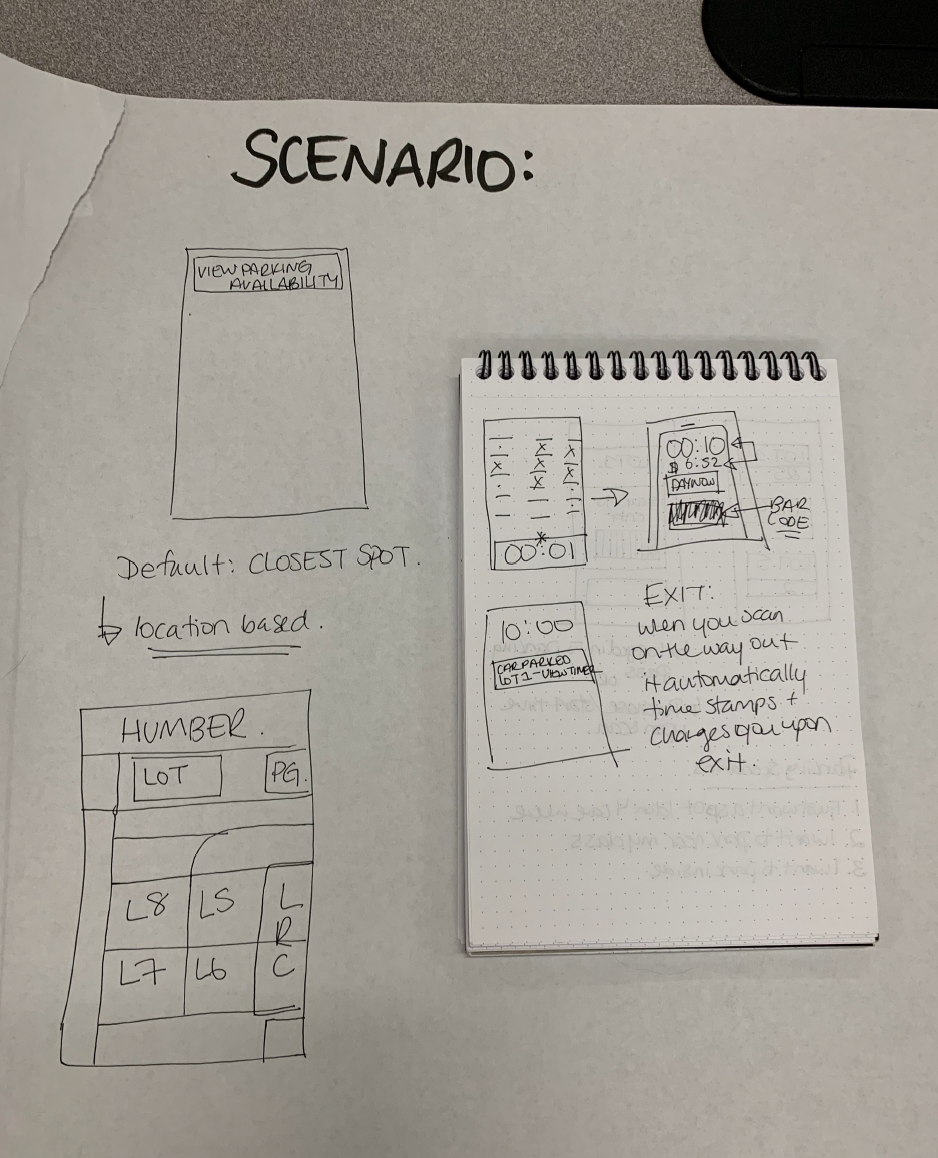 SCENARIO:
VIEW PARKING
AVAILABILITY
Default: CLOSEST SPOT.
location based.
HUMBER.
LOT
PG.
L8 L5
L7 L6
L
R
C
00:01
00:10
$ 6:52
PAYNOW
BAR
CODE
10:00
CAR PARKED
LOT 1-VIEW TIMER
EXIT:
wen you scan
on the way out
it automatically
time stamps +
charges you upon
exit.